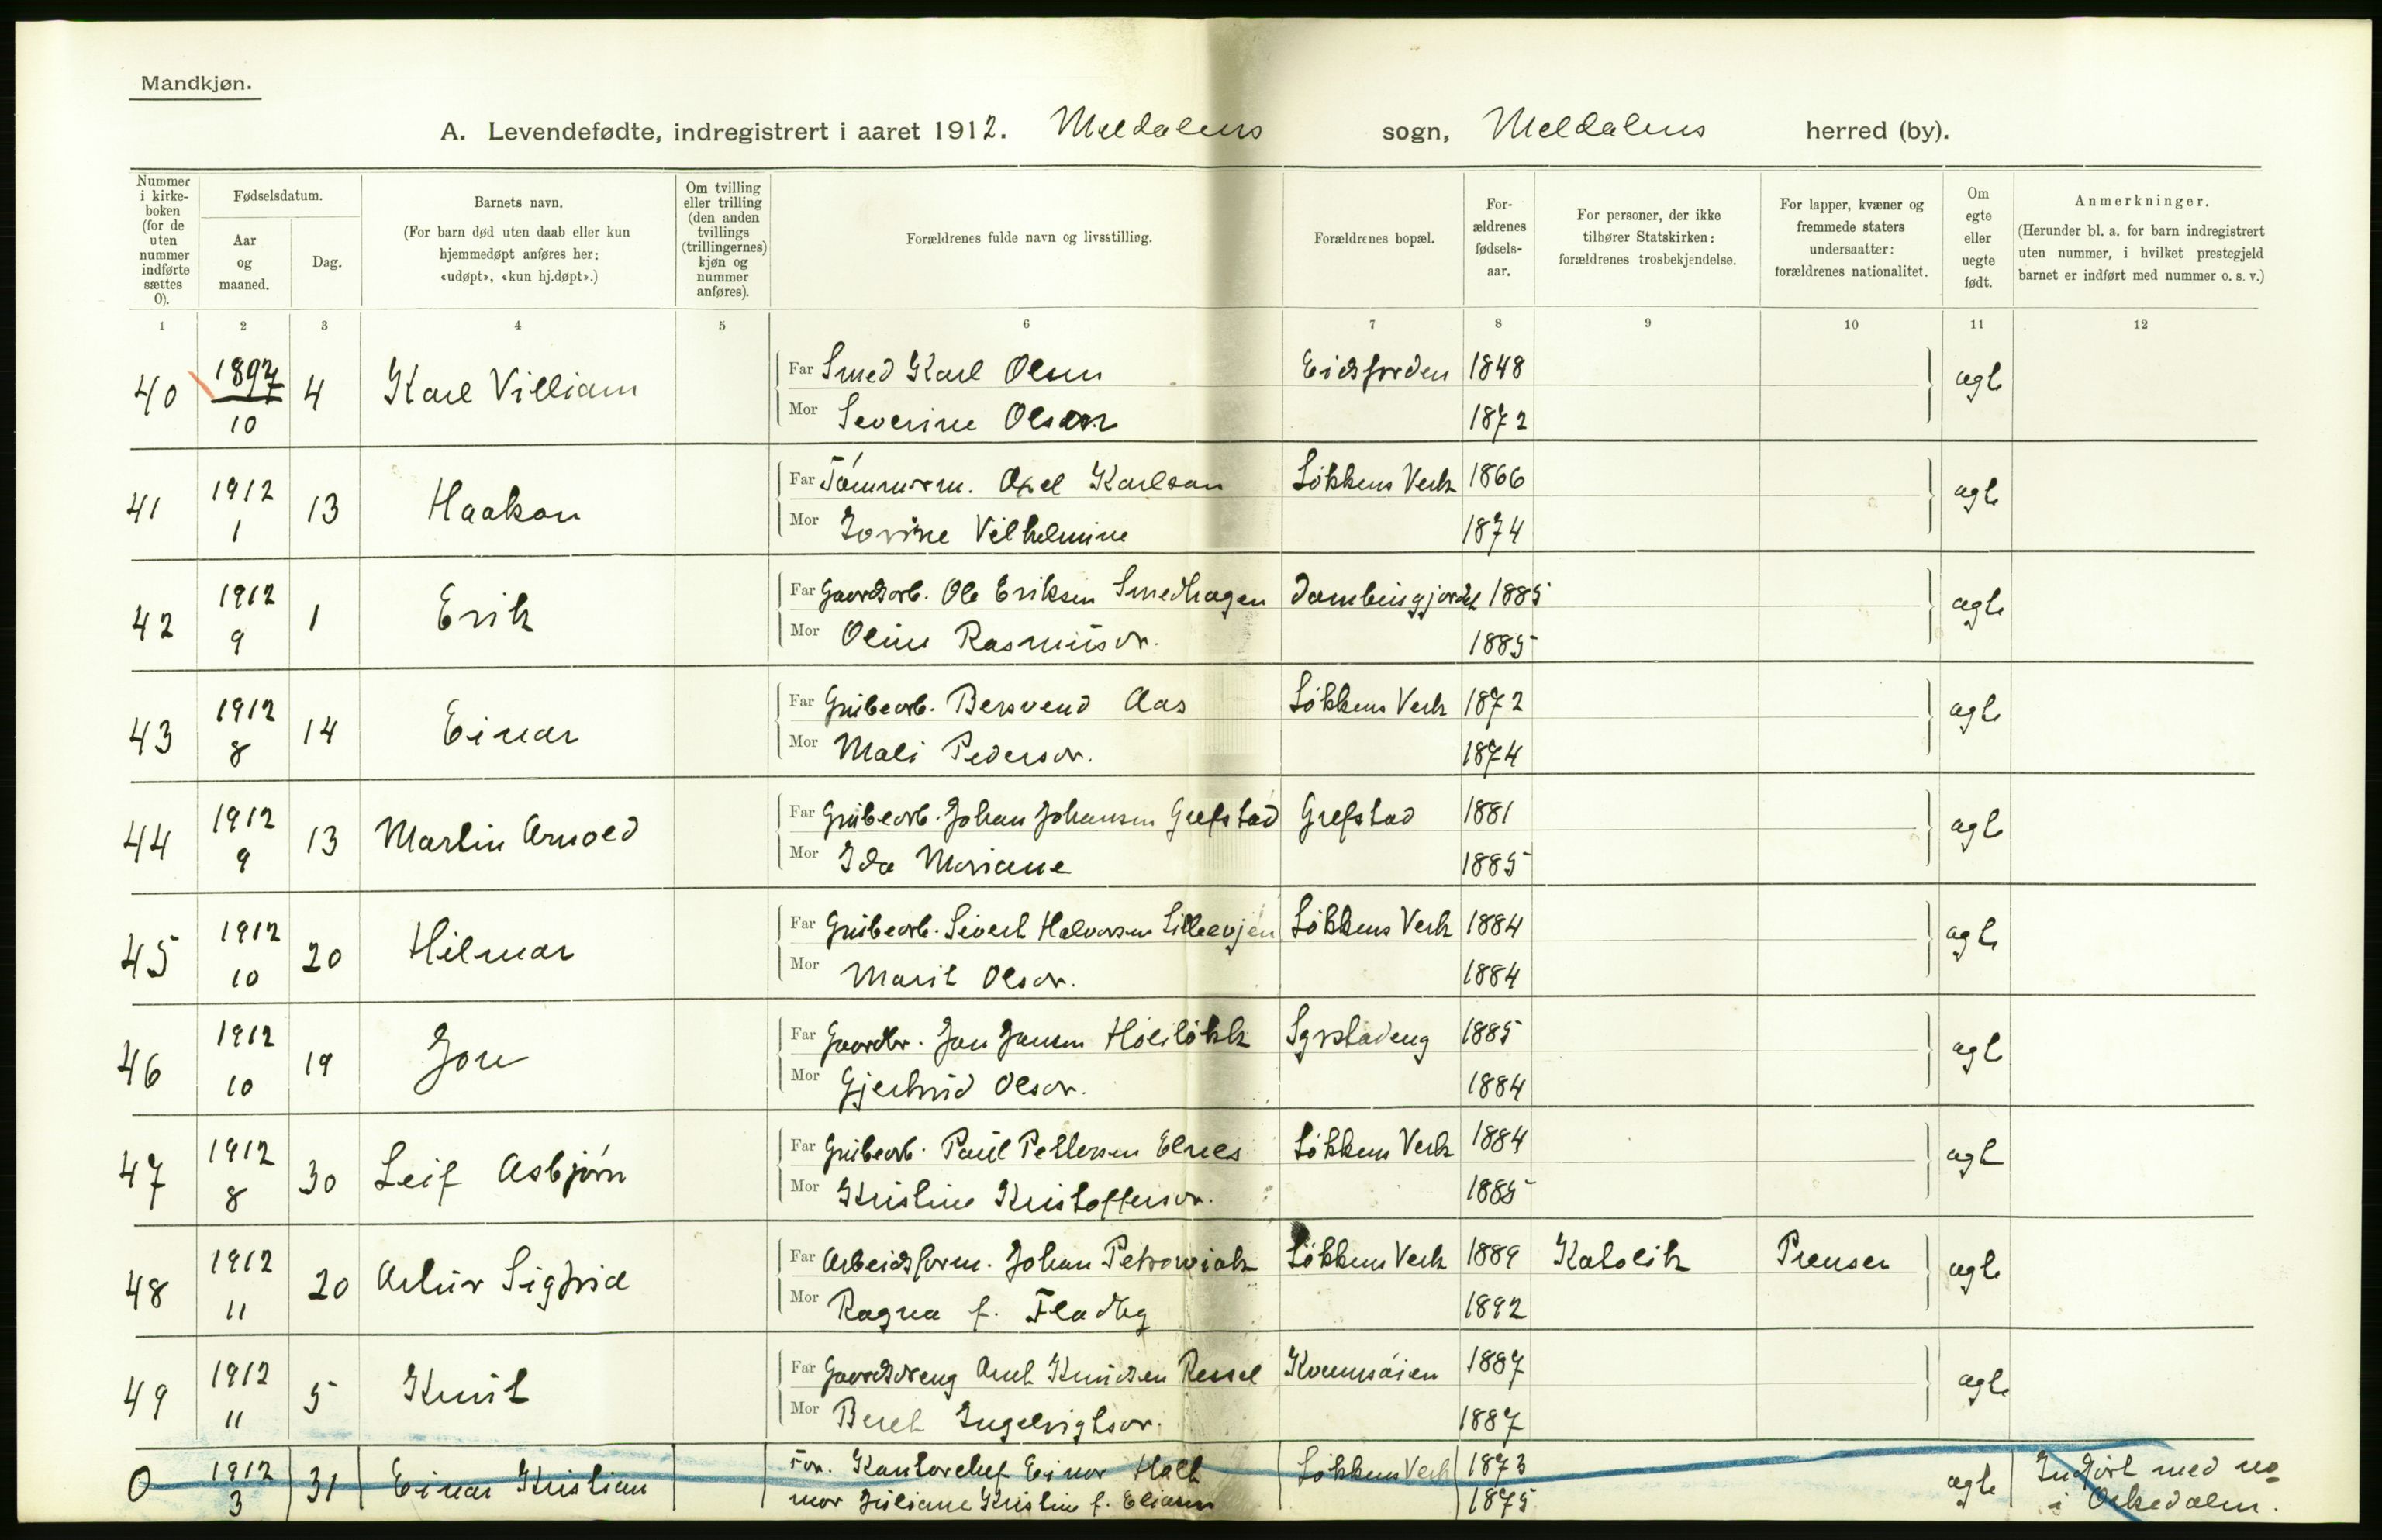 Mandkjøn.
A. Levendefødte, indregistrert i aaret 1912. Meldalens sogn, Meldalens herred (by).
Nummer i kirke-boken (for de uten nummer indførte sættes 0).
Fødselsdatum.
Aar og maaned.
Dag.
Barnets navn.
(For barn død uten daab eller kun hjemmedøpt anføres her: «udøpt», «kun hj.døpt».)
Om tvilling eller trilling (den anden tvillings (trillingernes) kjøn og nummer anføres).
Forældrenes fulde navn og livsstilling.
Forældrenes bopæl.
For-ældrenes fødsels-aar.
For personer, der ikke tilhører Statskirken: forældrenes trosbekjendelse.
For lapper, kvæner og fremmede staters undersaatter: forældrenes nationalitet.
Om egte eller uegte født.
Anmerkninger.
(Herunder bl. a. for barn indregistrert uten nummer, i hvilket prestegjeld barnet er indført med nummer o. s. v.)
1 2 3 4 5 6 7 8 9 10 11 12
40 1897 10 4 Karl Villiam Far Smed Karl Olsen Eidsfjorden 1848 ægte
Mor Severine Olsen 1872
41 1912 1 13 Haakon Far Tömmerm. Axel Karlson Lökkens Verk 1866 ægte
Mor Jovine Vilhelmine 1874
42 1912 9 1 Erik Far Gaardarb. Ole Eriksen Smedhagen 1885 ægte
Mor Oline Rasmusdr. 1885
43 1912 8 14 Einar Far Grubearb. Bersvend Aas Lökkens Verk 1872 ægte
Mor Mali Pedersdr. 1874
44 1912 9 13 Martin Arnold Far Grubearb. Johan Johansen Grefstad Grefstad 1881 ægte
Mor Ida Mariane 1885
45 1912 10 20 Hilmar Far Grubearb. Sivert Halvorsen Lilleevjen Lökkens Verk 1884 ægte
Mor Marit Olsdr. 1884
46 1912 10 19 Jon Far Gaardbr. Jon Jonsen Hoilökk Syrstadeng 1885 ægte
Mor Gjertrud Olsdr. 1884
47 1912 8 30 Leif Asbjörn Far Grubearb. Paul Pettersen Elnes Lökkens Verk 1884 ægte
Mor Kristine Kristoffersdr. 1885
48 1912 11 20 Artur Sigfrid Far Arbeidsform. Johan Petrowiak Lökkens Verk 1889 Katolik Preusen ægte
Mor Ragna f. Fladbg 1892
49 1912 11 5 Knut Far Gaardsdreng Arnt Knudsen Ressel Kvernsöien 1887 ægte
Mor Beret Ingebrigtsdr. 1887
0 1912 3 31 Einar Kristian Far. Kontorchef Einar Holt Lökkens Verk 1873 ægte Indfört med no
mor Juliane Kristine f. Eliasen 1875 i Orkedalen.